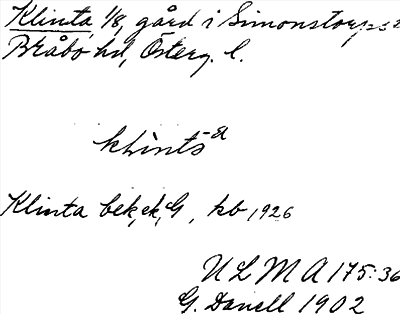 Klinta 1/8, gård i Simonstorps sn
Bråbo hd, Österg. l.
Klinta bek, ek, G, kb 1926
ULMA 175:36
G. Danell 1902